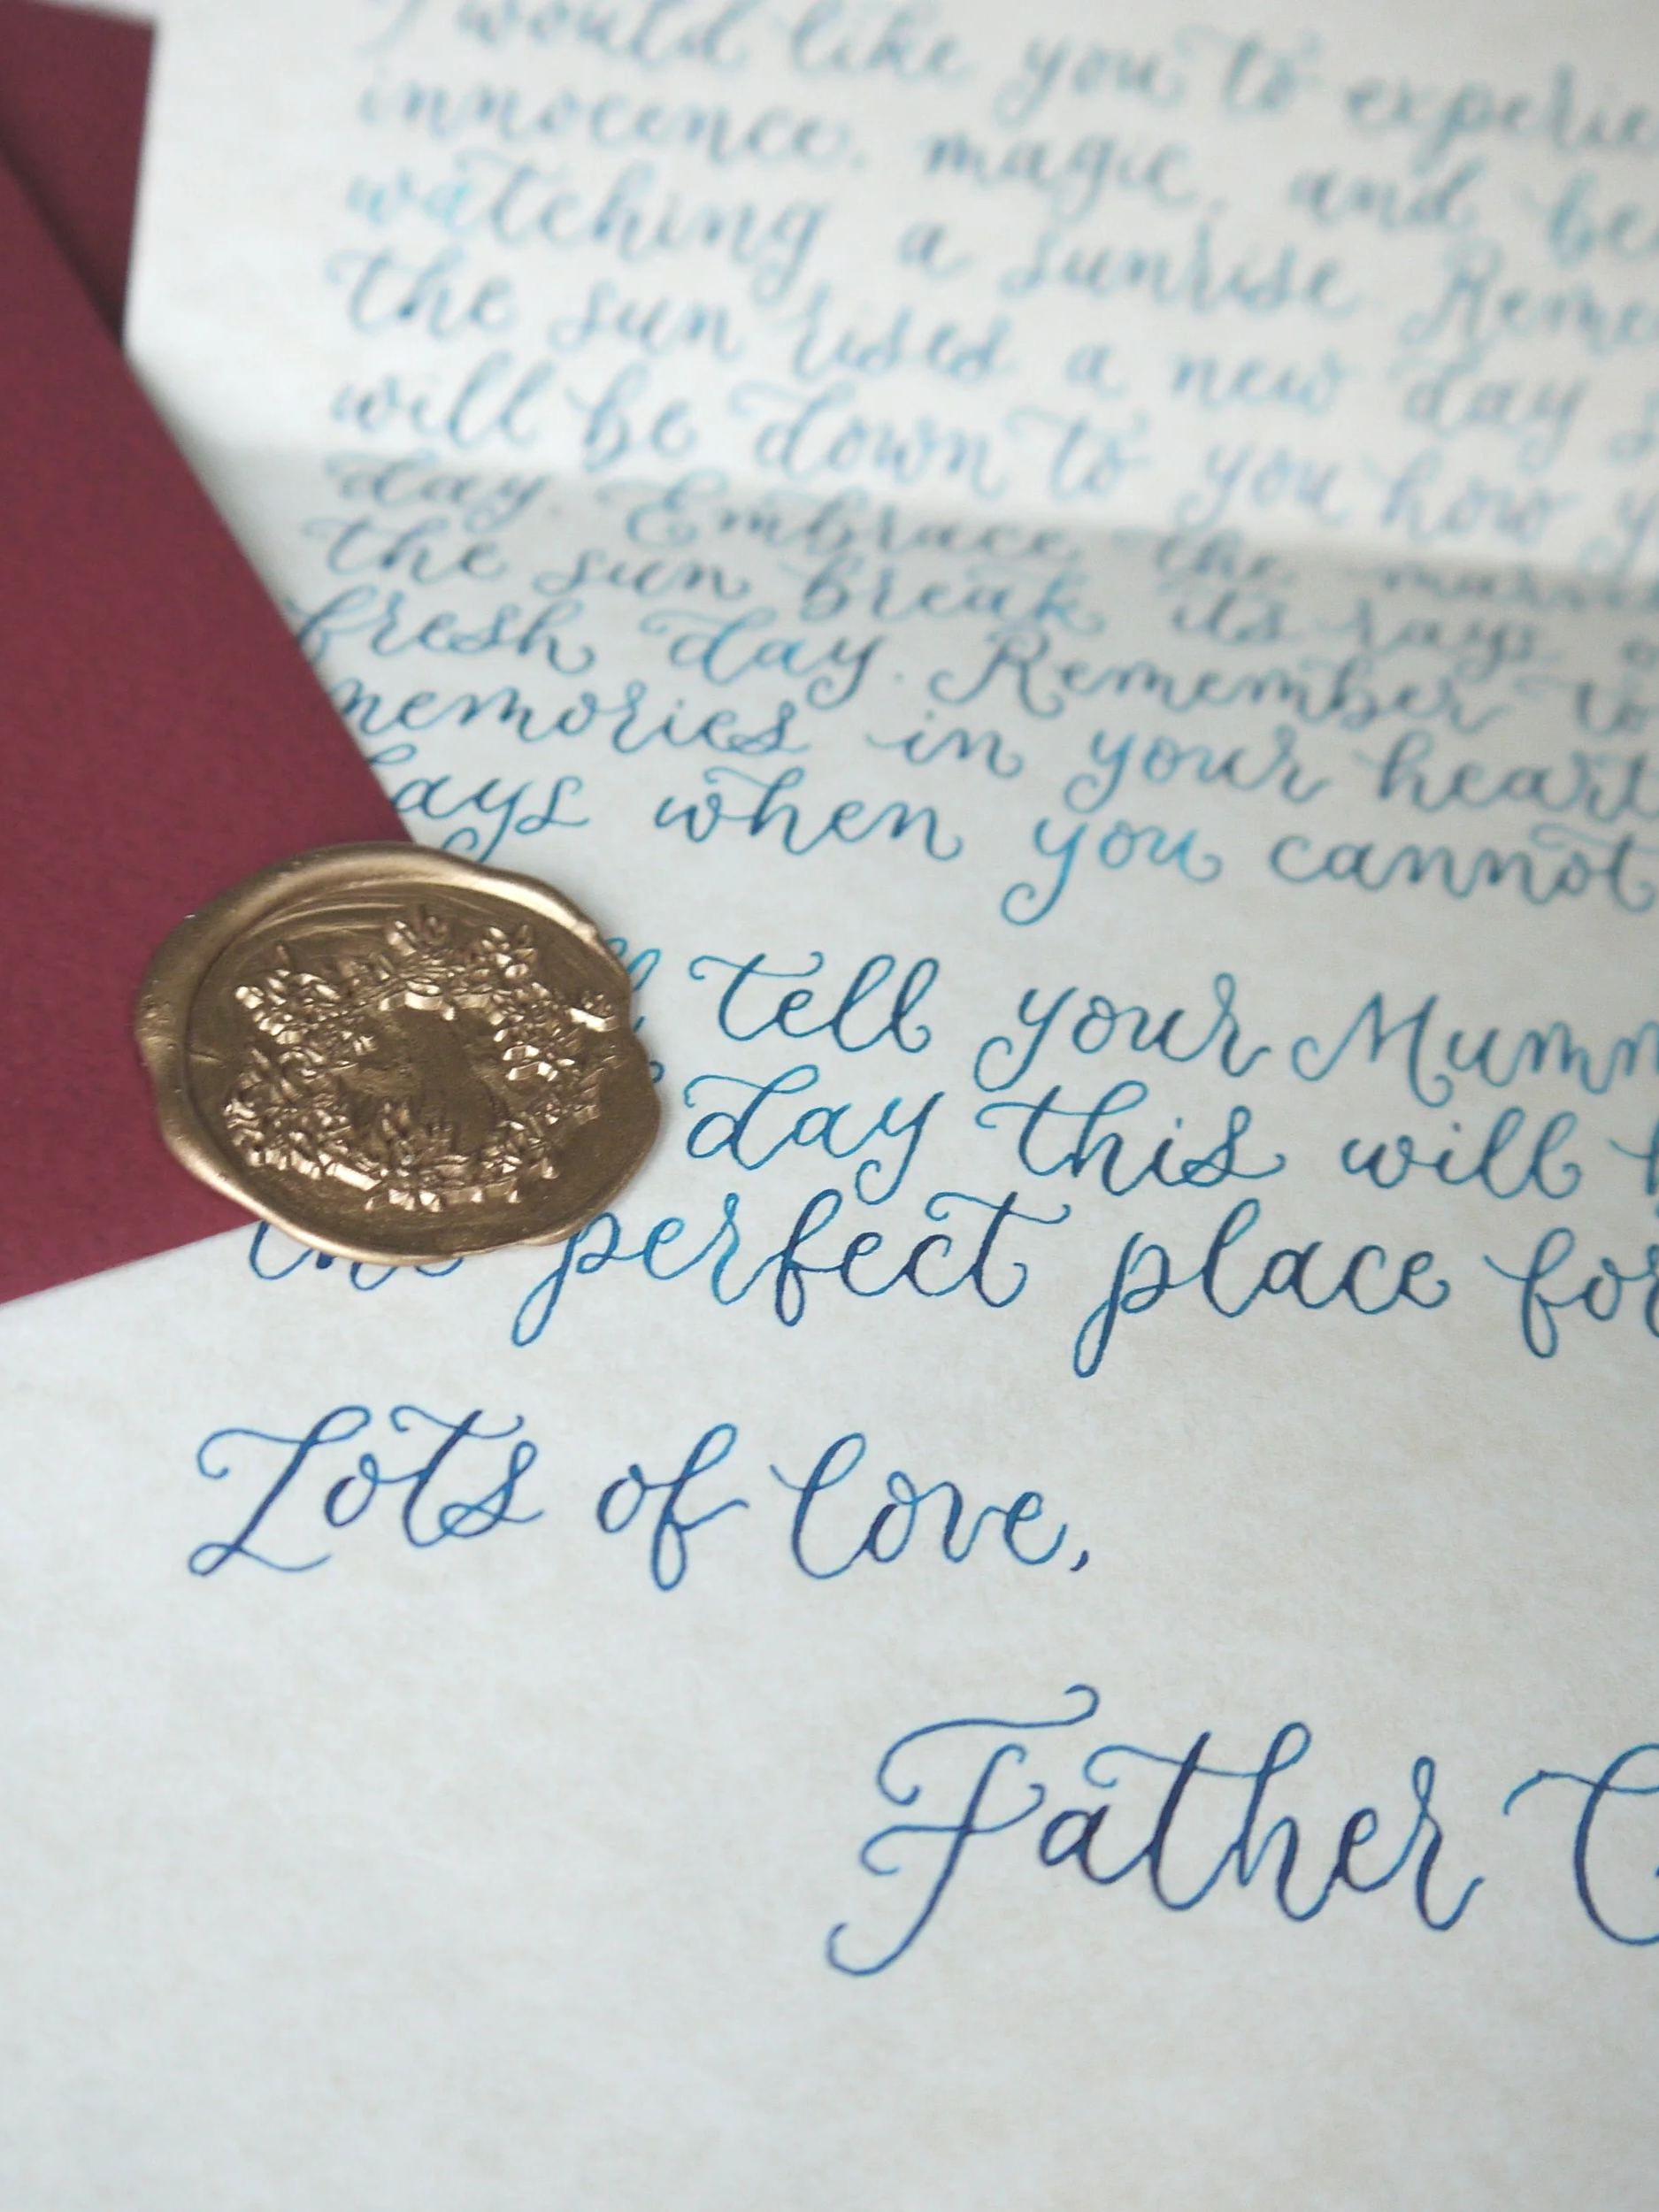 I would like you to experie
innocence, magic, and be
watching a sunrise Reme
the sun rises a new day s
will be down to you how y
day. Embrace the
the sun break its rays o
fresh day. Remember to
memories in your heart
days when you cannot
tell your Mumm
day this will b
the perfect place for
Lots of love,
Father C